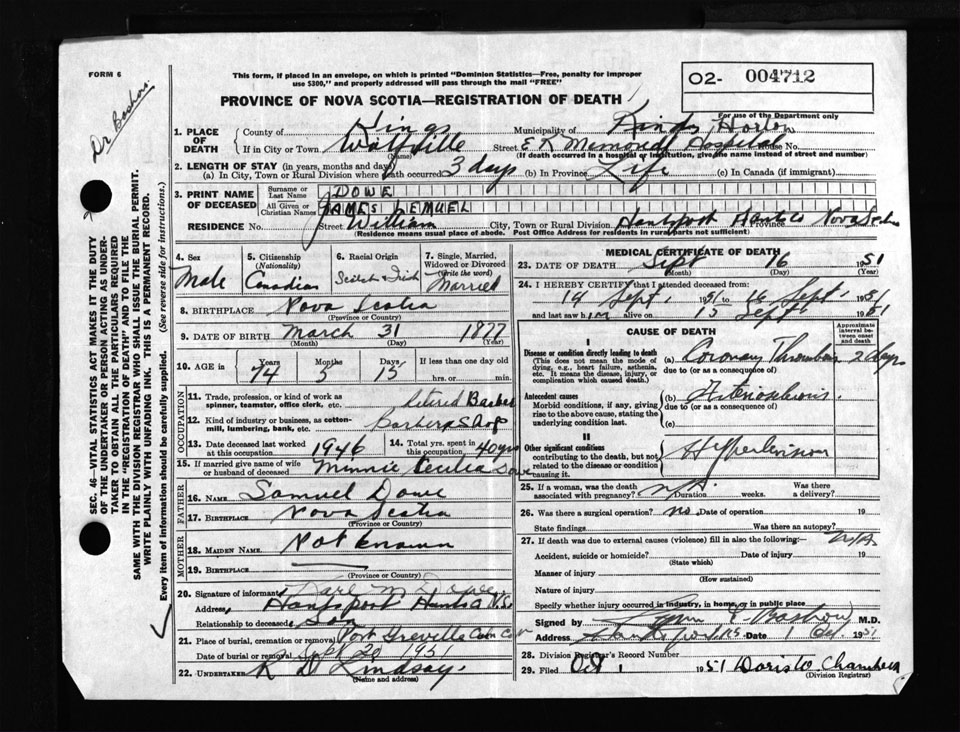 FORM 6
This form, if placed in an envelope, on which is printed "Dominion Statistics—Free, penalty for improper
use $300," and properly addressed will pass through the mail "FREE"
O2- 004712
For use of the Department only
PROVINCE OF NOVA SCOTIA—REGISTRATION OF DEATH
1. PLACE OF DEATH County of Kings Municipality of Kings Horton
If in City or Town Wolfville Street E K Memorial Hospital House No.
(Name) (If death occurred in a hospital or institution, give the name instead of street and number)
2. LENGTH OF STAY (in years, months and days)
(a) In City, Town or Rural Division where death occurred 3 days (b) In Province Life (c) In Canada (if immigrant)
3. PRINT NAME OF DECEASED Surname or Last Name DOWE
All Given or Christian Names JAMES LEMUEL
RESIDENCE No. Street William City, Town or Rural Division Hantsport Hants Co Province Nova Scotia
(Residence means usual place of abode. Post Office Address for residents in rural parts not sufficient)
4. Sex Male
5. Citizenship (Nationality) Canadian
6. Racial Origin Scotish Irish
7. Single, Married, Widowed or Divorced (Write the word) Married
8. BIRTHPLACE Nova Scotia
(Province or Country)
9. DATE OF BIRTH March 31 1877
(Month) (Day) (Year)
10. AGE in Years 74 Months 5 Days 15 If less than one day old
hrs. or min.
OCCUPATION
11. Trade, profession, or kind of work as
spinner, teamster, office clerk, etc. retired Barber
12. Kind of industry or business, as cotton-
mill, lumbering, bank, etc. Barber Shop
13. Date deceased last worked
at this occupation 1946
14. Total yrs. spent in
this occupation 40 yrs
15. If married give name of wife
or husband of deceased Minnie Cecilia Dowe
FATHER
16. NAME Samuel Dowe
17. BIRTHPLACE Nova Scotia
(Province or Country)
MOTHER
18. MAIDEN NAME Not known
19. BIRTHPLACE
(Province or Country)
20. Signature of informant
Address, Hantsport Hants N.S.
Relationship to deceased Son
21. Place of burial, cremation or removal Port Greville
Date of burial or removal Sept 20 1951
22. UNDERTAKER Lindsay
(Name and address)
MEDICAL CERTIFICATE OF DEATH
23. DATE OF DEATH Sept 16 1951
(Month) (Day) (Year)
24. I HEREBY CERTIFY that I attended deceased from:
14 Sept. 1951 to 16 Sept. 1951
and last saw him alive on 15 Sept 1951
CAUSE OF DEATH
Approximate interval between onset and death
I
Disease or condition directly leading to death
(This does not mean the mode of
dying, e.g., heart failure, asthenia,
etc. It means the disease, injury, or
complication which caused death.)
(a) Coronary Thrombosis 2 days
due to (or as a consequence of)
Antecedent causes
Morbid conditions, if any, giving
rise to the above cause, stating the
underlying condition last.
(b)
due to (or as a consequence of)
(c)
II
Other significant conditions
contributing to the death, but not
related to the disease or condition
causing it.
Hypertension
25. If a woman, was the death
associated with pregnancy? Duration weeks. Was there
a delivery?
26. Was there a surgical operation? no Date of operation 19
State findings Was there an autopsy?
27. If death was due to external causes (violence) fill in also the following:— N/A
Accident, suicide or homicide? Date of injury 19
(State which)
Manner of injury
(How sustained)
Nature of injury
Specify whether injury occurred in industry, in home, or in public place
Signed by M.D.
Address Hantsport N.S. Date 1 Oct. 1951
28. Division Registrar's Record Number
29. Filed Oct 1 1951 Doris W. Chambers
(Division Registrar)
SEC. 46—VITAL STATISTICS ACT MAKES IT THE DUTY
OF THE UNDERTAKER OR PERSON ACTING AS UNDER-
TAKER TO OBTAIN ALL THE PARTICULARS REQUIRED
IN THE "REGISTRATION OF DEATH" AND TO FILE THE
SAME WITH THE DIVISION REGISTRAR WHO SHALL ISSUE THE BURIAL PERMIT.
WRITE PLAINLY WITH UNFADING INK. THIS IS A PERMANENT RECORD.
Every item of information should be carefully supplied. (See reverse side for instructions.)